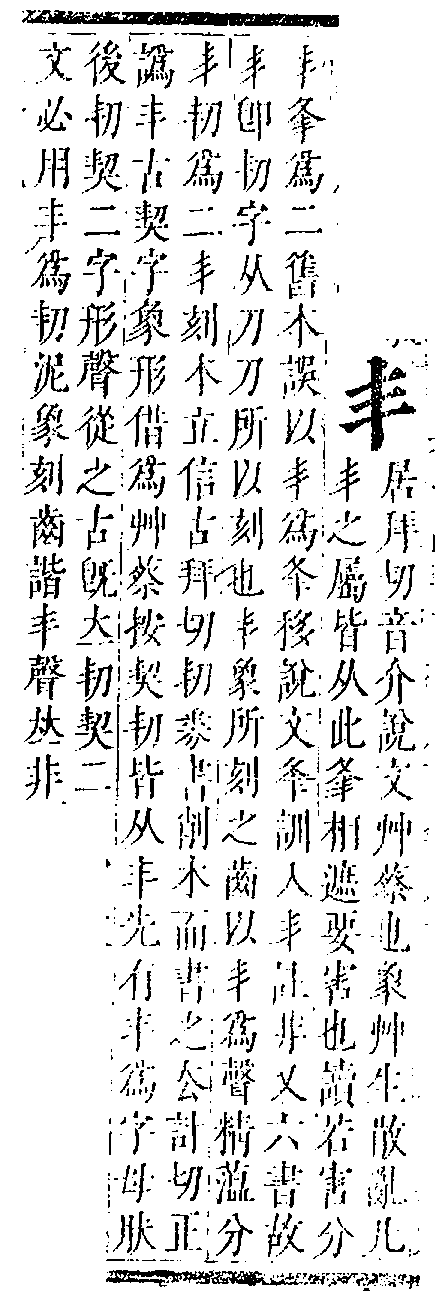 丯
居拜切音介說文艸蔡也象艸生散亂凡
丯之屬皆从此夆相遮要害也讀若害分
丯夆爲二舊本誤以丯爲夆移說文夆訓入丯註非又六書故
丯卽㓞字从刀刀所以刻也丯象所刻之齒以丯爲聲精蘊分
丯㓞爲二丯刻木立信古拜切㓞
書削木而書之公計切正
譌丯古契字象形借爲艸蔡按契㓞皆从丯先有丯爲字母肰
後㓞契二字形聲從之古旣大㓞契二
文必用丯爲㓞泥象刻齒諧丯聲𠀤非